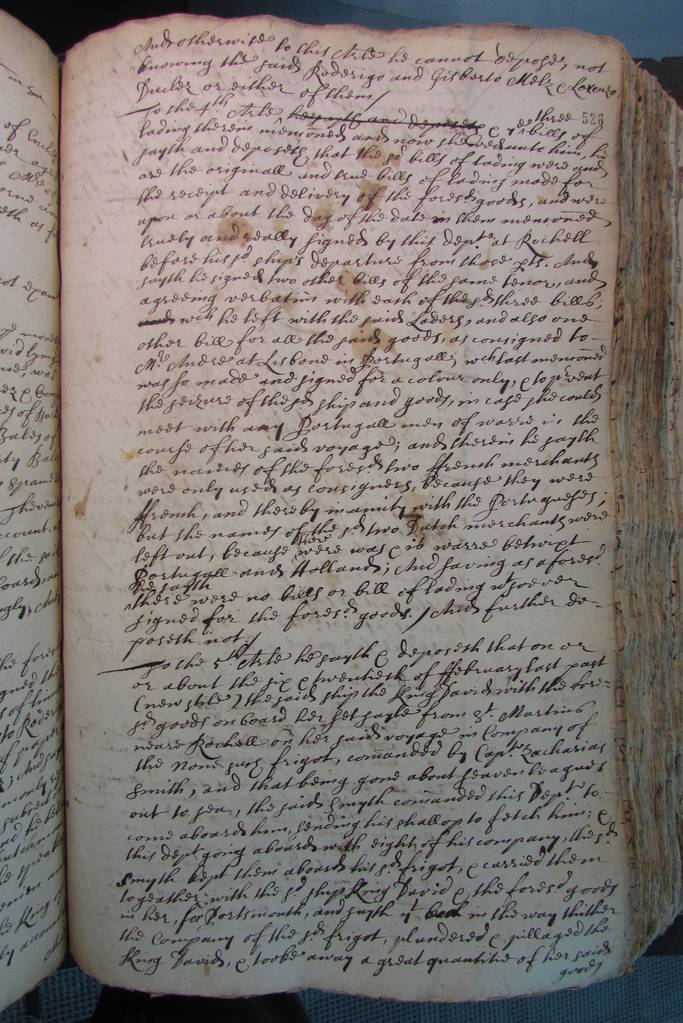 And otherwise to this Arle he cannot depose, not
knowing the said Roderigo and Gisberto Melz Lorenzo
Ducker or either of them /
To the 4th Arle, he sayth and deposeth & ye three 526
lading therein menconed and now shewed unto him, he bills of
sayth and deposeth that the sd bills of lading were and
are the originall and true bills of lading made for
the receipt and delivery of the foresd goods, and were
upon or about the day of the date in them menconed
truely and really signed by this dept at Rochell
before his sd ships departure from those pts. And
sayth he signed two other bills of the same tenor, and
agreeing verbatim with each of the sd three bills,
and wch he left with the said Laders, and also one
other bill for all the said goods, as consigned to
Mr Andre at Lisbone in Portugall, wch last menconed
was so made and signed for a colour only, & to prvent
the seizure of the sd ship and goods, in case she could
meet with any Portugall men of warre in the
course of her said voyage; and therein he sayth
the names of the foresd two ffrench merchants
were only used as consigners, because they were
ffrench, and thereby in amity with the Portugueses;
but the names of the sd two Dutch merchants were
left out, because there were was & is warre betwixt
Portugall and Holland; And saving as aforesd
he sayth
there were no bills or bill of lading wtsoever
signed for the foresd goods. / And further de-
poseth not /
To the 5th Arle he sayth & deposeth that on or
or about the six & twentieth of ffebruary last past
(new stile) the said ship the King David with the fore-
sd goods on board her set sayle from St. Martins
neare Rochell on her said voyage in Company of
the None such frigot, comanded by Capt Zacharias
Smith, and that being gone about seaven leagues
out to sea, the said Smyth comanded this Dept to
come aboard him, sending his shallop to fetch him; &
this dept going aboard with eight of his company, the sd
Smyth kept them aboard his sd frigot, & carried them
togeather with the sd ship King David & the foresd goods
in her, for Portsmouth, and sayth yt in the way thither
the Company of the sd frigot, plundered & pillaged the
King David, & tooke away a great quantitie of her said
goods